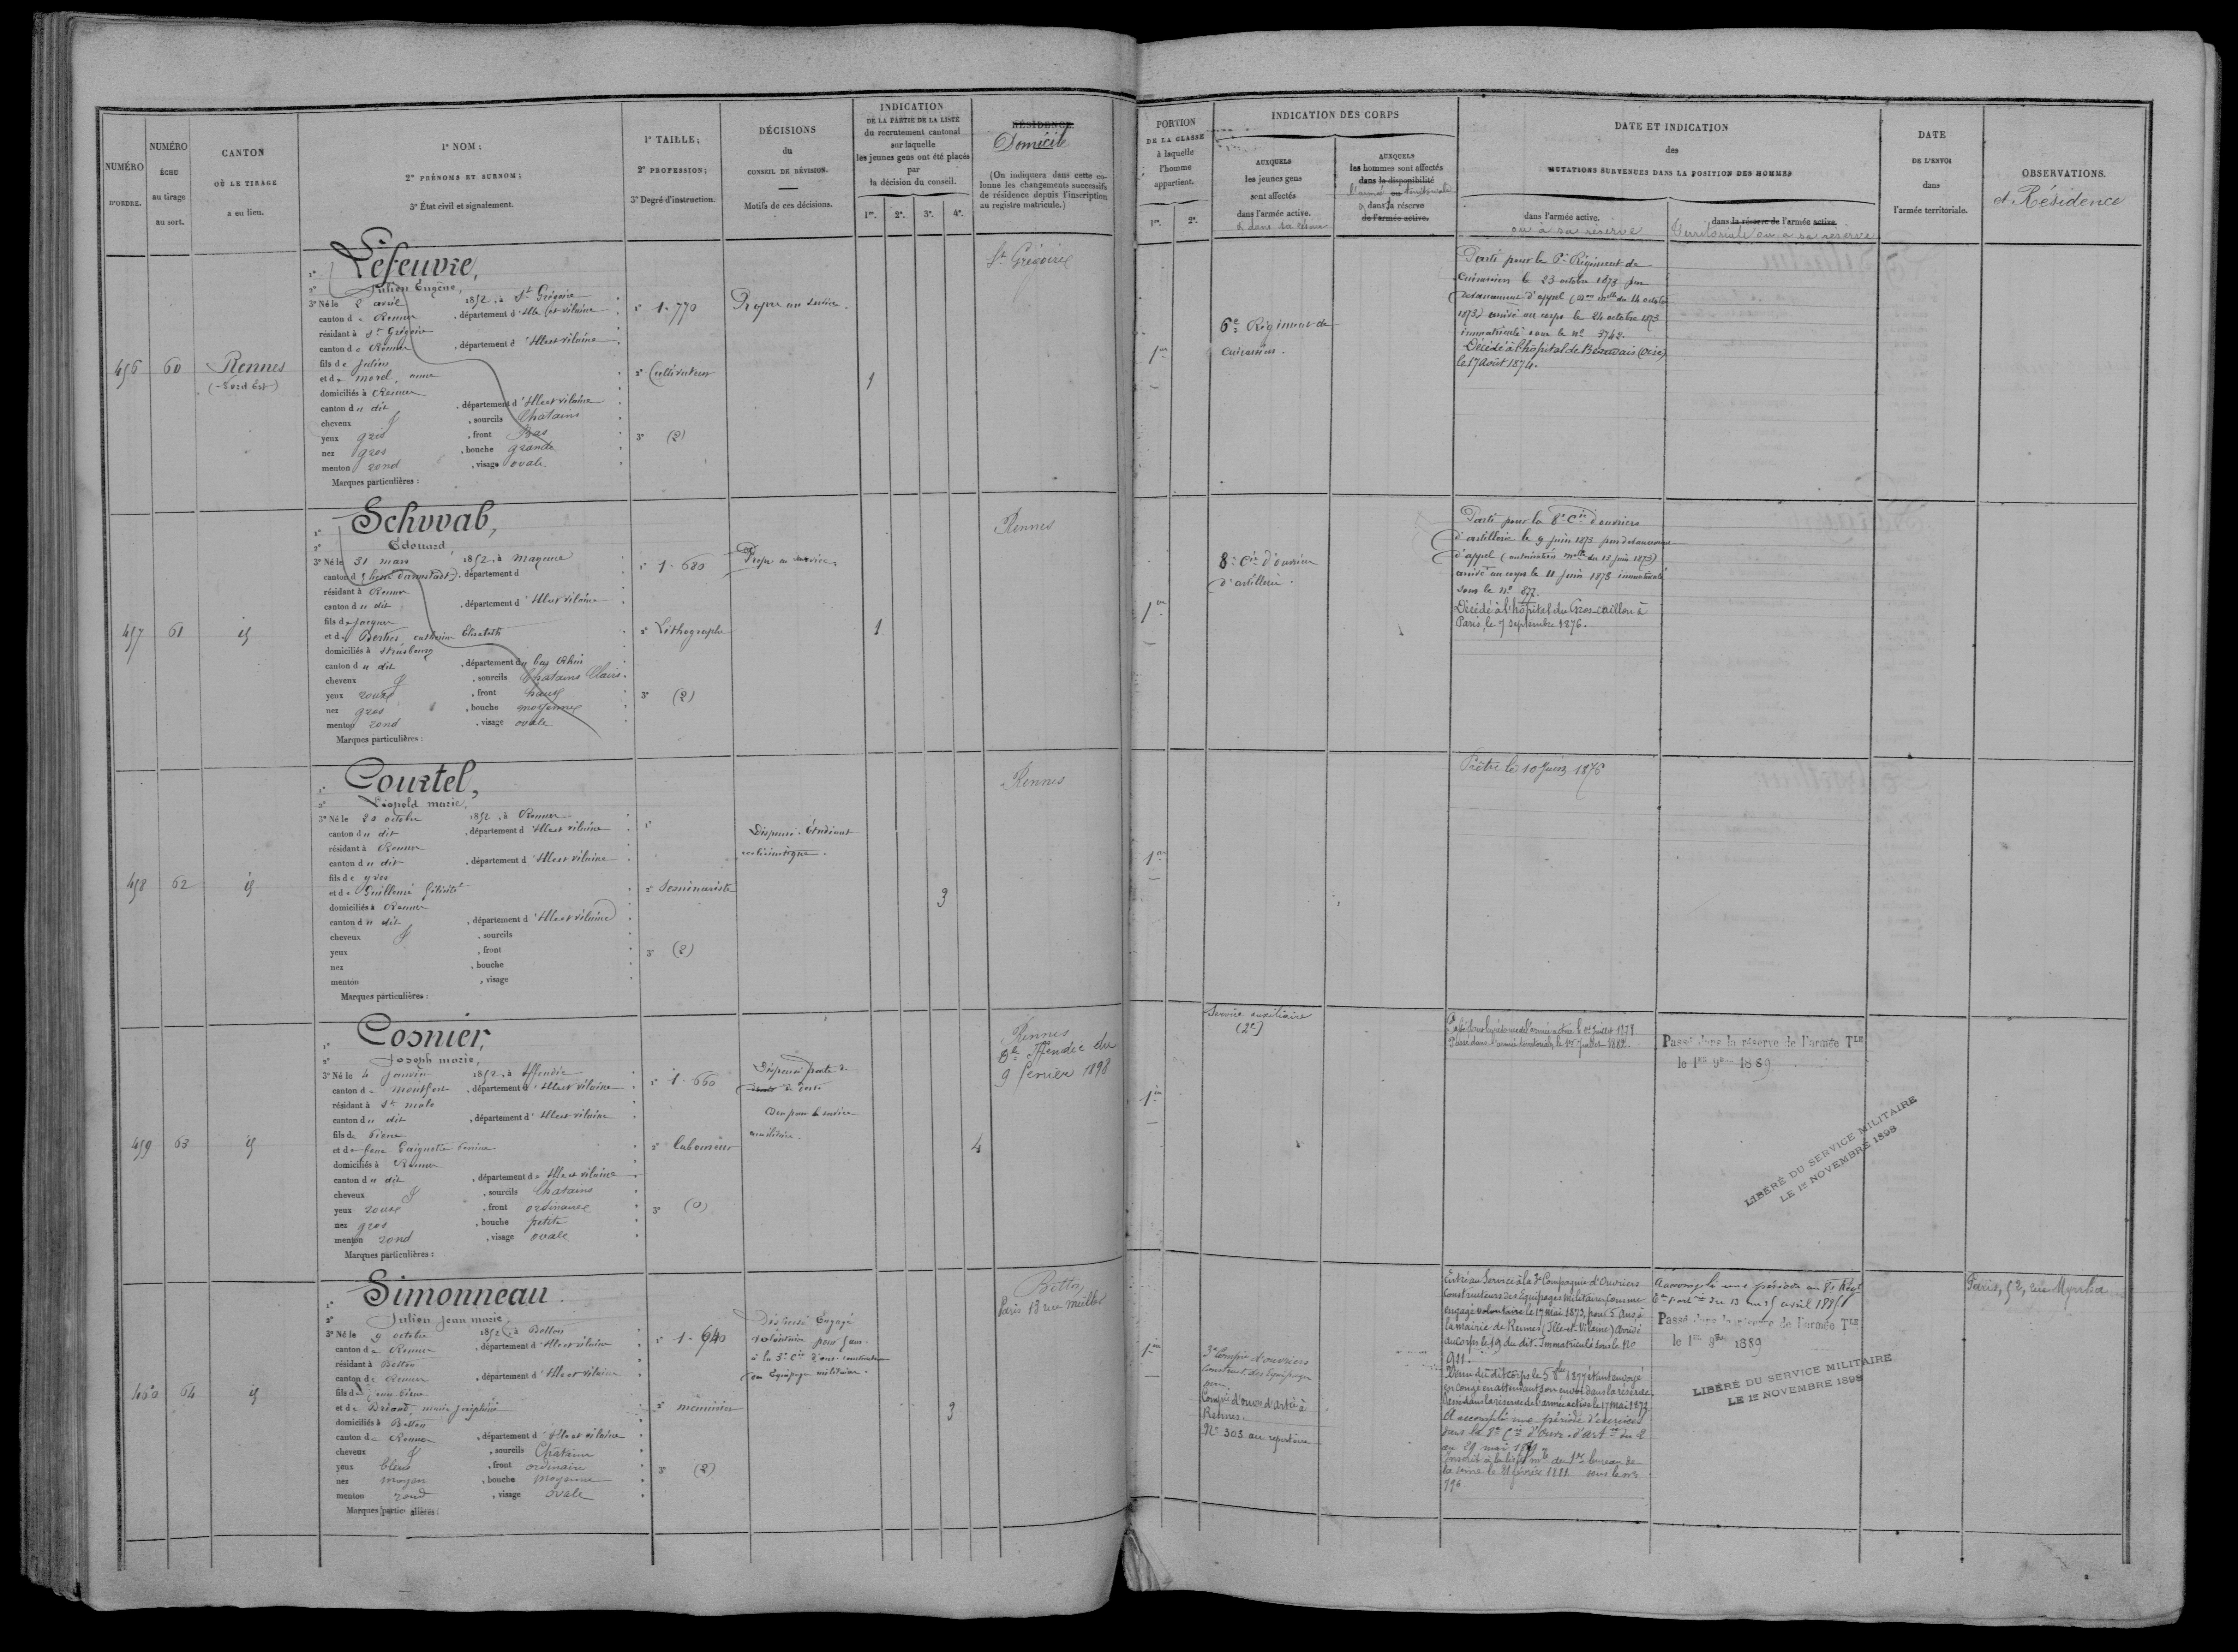 NUMÉRO
D'ORDRE.
NUMÉRO
ÉCHU
au tirage
au sort.
CANTON
OÙ LE TIRAGE
a eu lieu.
1° NOM ;
2° PRÉNOMS ET SURNOM ;
3° État civil et signalement.
1° TAILLE ;
2° PROFESSION ;
3° Degré d'instruction.
DÉCISIONS
du
CONSEIL DE RÉVISION.
Motifs de ces décisions.
INDICATION
DE LA PARTIE DE LA LISTE
du recrutement cantonal
sur laquelle
les jeunes gens ont été placés
par
la décision du conseil.
1re. 2e. 3e. 4e.
RÉSIDENCE
Domicile
(On indiquera dans cette co-
lonne les changements successifs
de résidence depuis l'inscription
au registre matricule.)
PORTION
DE LA CLASSE
à laquelle
l'homme
appartient.
1re. 2e.
INDICATION DES CORPS
AUXQUELS
les jeunes gens
sont affectés
dans l'armée active.
& dans sa réserve
AUXQUELS
les hommes sont affectés
dans la disponibilité
l'armée territoriale
dans la réserve
de l'armée active.
DATE ET INDICATION
des
MUTATIONS SURVENUES DANS LA POSITION DES HOMMES
dans l'armée active.
ou à sa réserve
dans la réserve de l'armée active.
Territoriale ou à sa réserve
DATE
DE L'ENVOI
dans
l'armée territoriale.
OBSERVATIONS.
et Résidence
456 60 Rennes
(Nord Est)
1° Lefeuvre,
2° Julien Eugène,
3° Né le 2 avril 1852, à St Grégoire
canton de Rennes, département d'Ille et vilaine
résidant à St Grégoire
canton de Rennes, département d'Ille et vilaine
fils de Julien
et de Morel, anne
domiciliés à Rennes
canton du dit, département d'Ille et vilaine
cheveux, sourcils Chatains
yeux gris, front Bas
nez gros, bouche grande
menton rond, visage ovale
Marques particulières :
1° 1.770
2° Cultivateur
3° (2)
Propre au service.
1
St Grégoire
1re
6e Régiment de
cuirassiers.
Parti pour le 6e Régiment de
cuirassiers le 23 octobre 1873 par
devancement d'appel (Don melle du 14 octobre
1873) arrivé au corps le 24 octobre 1873
immatriculé sous le no 3742.
Décédé à l'hôpital de Beauvais (Oise)
le 17 août 1874.
457 61 id
1° Schwab,
2° Édouard,
3° Né le 31 mars 1852, à Mayence
canton d (hesse darmstadt), département d
résidant à Rennes
canton du dit, département d'Ille et vilaine
fils de Jacques
et de Berthes, catherine Elisabeth
domiciliés à Strasbourg
canton du dit, département du bas Rhin
cheveux, sourcils Chatains Clairs.
yeux roux, front haut
nez gros, bouche moyenne
menton rond, visage ovale
Marques particulières :
1° 1.680
2° Lithographe
3° (2)
Propre au service
1
Rennes
1re
8e Cie d'ouvriers
d'artillerie.
Parti pour la 8e Cie d'ouvriers
d'artillerie le 9 juin 1873 par devancement
d'appel (autorisation melle du 13 juin 1873)
arrivé au corps le 11 juin 1873 immatriculé
sous le no 877.
Décédé à l'hôpital du Gros-caillou à
Paris, le 7 septembre 1876.
458 62 id
1° Courtel,
2° Léopold marie,
3° Né le 20 octobre 1852, à Rennes
canton du dit, département d'Ille et vilaine
résidant à Rennes
canton du dit, département d'Ille et vilaine
fils de yves
et de Guillemé félicité
domiciliés à Rennes
canton du dit, département d'Ille et vilaine
cheveux, sourcils
yeux, front
nez, bouche
menton, visage
Marques particulières :
1°
2° Seminariste
3° (2)
Dispensé. Etudiant
ecclésiastique.
3
Rennes
1re
Prêtre le 10 Juin 1876
459 63 id
1° Cosnier,
2° Joseph marie,
3° Né le 4 Janvier 1852, à Iffendic
canton de montfort, département d'Ille et vilaine
résidant à St malo
canton du dit, département d'Ille et vilaine
fils de Pierre
et de feue
domiciliés à Rennes
canton du dit, département d'Ille et vilaine
cheveux, sourcils Chatains
yeux roux, front ordinaire
nez gros, bouche petite
menton rond, visage ovale
Marques particulières :
1° 1.660
2° laboureur
3° (0)
Dispensé perte de
de dents
Bon pour le service
auxiliaire.
4
Rennes
Iffendic du
9 fevrier 1898
1re
Service auxiliaire
(2e)
Passé dans la réserve de l'armée active le 1er Juillet 1878.
Passé dans l'armée territoriale, le 1er Juillet 1882.
Passé dans la réserve de l'armée Tle
le 1er 9bre 1889
LIBÉRÉ DU SERVICE MILITAIRE
LE 1er NOVEMBRE 1898
460 64 id
1° Simonneau
2° Julien Jean marie
3° Né le 9 octobre 1852, à Betton
canton de Rennes, département d'Ille et vilaine
résidant à Betton
canton de Rennes, département d'Ille et vilaine
fils de Jean Pierre
et de Briand, marie Joséphine
domiciliés à Betton
canton de Rennes, département d'Ille et vilaine
cheveux, sourcils Chatain
yeux bleus, front ordinaire
nez moyen, bouche moyenne
menton rond, visage ovale
Marques particulières :
1° 1.640
2° menuisier
3° (2)
Dispensé Engagé
volontaire pour 5 ans.
à la 3e Cie d'ouv. constructeurs
des Equipages militaires.
3
Betton
Paris 13 rue muller
1re
3e Compie d'ouvriers
construct. des Equipages
Compie d'ouvrs d'Artie à
Rennes.
No 303 au repertoire
Entré au Service à la 3e Compagnie d'Ouvriers
constructeurs des Equipages militaires, comme
engagé volontaire le 17 mai 1873, pour 5 Ans, à
la mairie de Rennes (Ille-et-Vilaine) Arrivé
au corps le 19 du dit. Immatriculé sous le No
911.
Venu du dit corps le 5 8bre 1877 étant envoyé
en congé en attendant son envoi dans la réserve.
Passé dans la réserve de l'armée active le 17 mai 1878
A accompli une période d'exercices
dans la 8e Cie d'Ouvr. d'Artie du 2
au 29 mai 1879
Inscrit à la liste mle du 1er bureau de
la seine le 21 février 1881 sous le no
796
A accompli une période au Régt
du 13 au 25 avril 1885
Passé dans la réserve de l'armée Tle
le 1er 9bre 1889
LIBÉRÉ DU SERVICE MILITAIRE
LE 1er NOVEMBRE 1898
Paris, 52, rue Myrrha